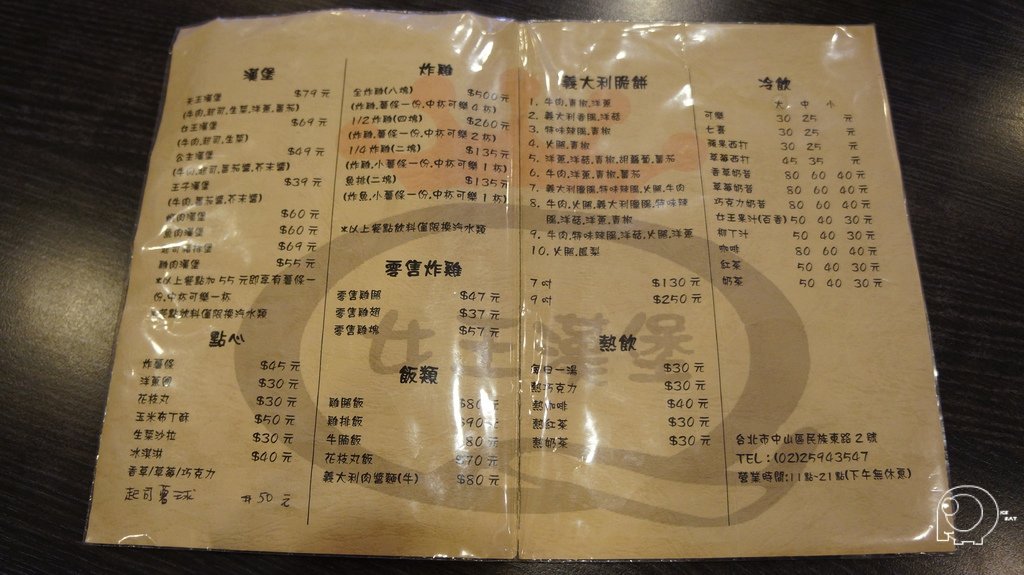 漢堡
女王漢堡 $79元
(牛肉.起司.生菜.洋蔥.蕃茄)
女王漢堡 $69元
(牛肉.起司.生菜)
漢堡 $49元
(牛肉.起司.蕃茄醬.芥末醬)
王子漢堡 $39元
(牛肉.蕃茄醬.芥末醬)
肉漢堡 $60元
魚肉漢堡 $60元
漢堡 $69元
雞肉漢堡 $55元
*以上餐點加55元即享有薯條一
份.中杯可樂一杯
餐點飲料僅限換汽水類
點心
$45元
$30元
花枝丸 $30元
玉米布丁酥 $50元
生菜沙拉 $30元
冰淇淋 $40元
香草/草莓/巧克力
起司薯球 #50元
炸雞
全炸雞(八塊) $500元
(炸雞.薯條一份.中杯可樂4杯)
1/2炸雞(四塊) $260元
(炸雞.薯條一份.中杯可樂2杯)
1/4炸雞(二塊) $135元
(炸雞.小薯條一份.中杯可樂1杯)
魚排(二塊) $135元
(炸魚.小薯條一份.中杯可樂1杯)
*以上餐點飲料僅限換汽水類
零售炸雞
零售雞腿 $47元
零售雞翅 $37元
零售雞塊 $57元
飯類
雞腿飯 $80元
雞排飯 $90元
牛腩飯 $80元
花枝丸飯 $70元
義大利肉醬麵(牛) $80元
義大利脆餅
1. 牛肉.青椒.洋蔥
2. 義大利香腸.洋菇
3. 特味辣腸.青椒
4. 火腿.青椒
5. 洋蔥.洋菇.青椒.胡蘿蔔.蕃茄
6. 牛肉.洋蔥.青椒.蕃茄
7. 義大利臘腸.特味辣腸.火腿.牛肉
8. 牛肉.火腿.義大利臘腸.特味辣
腸.洋菇.洋蔥.青椒
9. 牛肉.特味辣腸.洋菇.火腿.洋蔥
10. 火腿.鳳梨
7吋 $130元
9吋 $250元
熱飲
每日一湯 $30元
熱巧克力 $30元
熱咖啡 $40元
熱紅茶 $30元
熱奶茶 $30元
冷飲
大 中 小
可樂 30 25 元
七喜 30 25 元
蘋果西打 30 25 元
草莓西打 45 35 元
香草奶昔 80 60 40元
草莓奶昔 80 60 40元
巧克力奶昔 80 60 40元
女王果汁(百香) 50 40 30元
柳丁汁 50 40 30元
咖啡 80 60 40元
紅茶 50 40 30元
奶茶 50 40 30元
台北市中山區民族東路2號
TEL:(02)25943547
營業時間:11點-21點(下午無休息)
女王漢堡